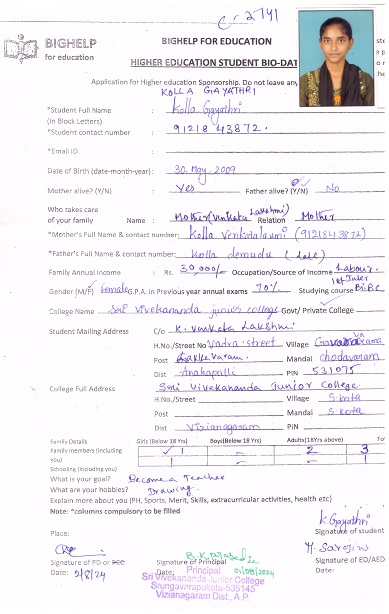 C-2741
BIGHELP
for education
BIGHELP FOR EDUCATION
HIGHER EDUCATION STUDENT BIO-DAT
Application for Higher education Sponsorship. Do not leave any
KOLLA GAYATHRI
*Student Full Name : Kolla Gayathri
(in Block Letters)
*Student contact number : 91218 43872.
*Email ID :
Date of Birth (date-month-year): 30. May. 2009
Mother alive? (Y/N) : Yes Father alive? (Y/N) No
Who takes care
of your family Name : Mother (Venkata Lakshmi) Relation Mother
*Mother's Full Name & contact number: Kolla Venkatalaxmi (9121843872)
*Father's Full Name & contact number: Kolla demudu (Late)
Family Annual Income : Rs. 30,000/- Occupation/Source of Income Labour.
1st Inter
Gender (M/F) female G.P.A. in Previous year annual exams 70% Studying course Bi.P.C
College Name : Sri Vivekananda junior college Govt/ Private College
Student Mailing Address C/o K. Venkata Lakshmi
H.No./Street No Vadra street Village
Post Lakkavaram. Mandal chodavaram
Dist Anakapalli PIN 531075
College Full Address Sri Vivekananda Junior College
H.No./Street Village S.Kota
Post Mandal S.Kota
Dist Vizianagaram PIN
Family Details Girls (Below 18 Yrs) Boys(Below 18 Yrs) Adults(18Yrs above) Tot
Family members (including you) 1 – 2 3
Schooling (including you) 1 – – 1
What is your goal? Become a Teacher
What are your hobbies? Drawing.
Explain more about you (PH, Sports, Merit, Skills, extracurricular activities, health etc)
Note: *columns compulsory to be filled
Place: K Gayathri
Signature of student
Signature of PD or SCC Signature of Principal Signature of ED/AED
Date: 2/8/24 Date: 02/08/2024 Date:
Principal
Sri Vivekananda Junior College
Srungavarapukota-535145
Vizianagaram Dist., A.P.